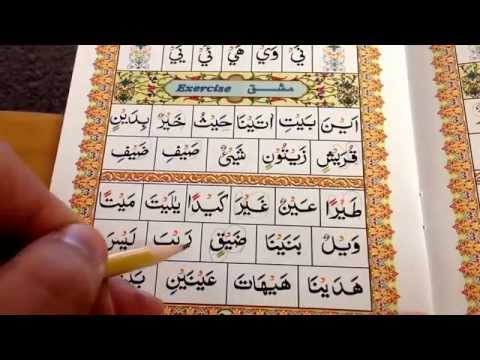 نَيْ وَيْ هَيْ ئَيْ يَيْ
Exercise مشق
اَيْنَ بَيْتِ اٰتَيْنَا حَيْثُ خَيْرٌ بِدَيْنٍ
قُرَيْشٍ زَيْتُوْنٍ شَيْئٍ صَيْفِ ضَيْفِ
طَيْرًا عَيْنٌ غَيْرَ كَيْدًا يٰلَيْتَ مَيْتًا
وَيْلٌ بَنَيْنَا ضَيْقٍ رَيْبَ لَيْسَ
هَدَيْنَا هَيْهَاتَ عَيْنَيْنِ